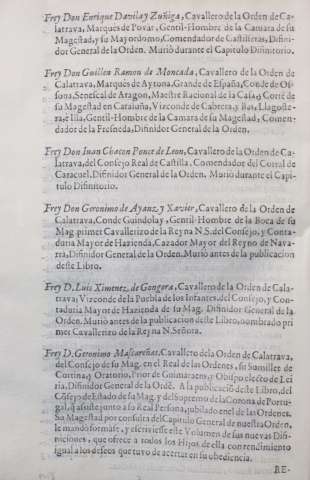 Frey Don Enrique Davila y Zuñiga, Cavallero de la Orden de Ca-
latrava, Marques de Povar, Gentil-Hombre de la Camara de su
Magestad, y su Mayordomo, Comendador de Castilseras, Difini-
dor General de la Orden. Muriò durante el Capitulo Difinitorio.
Frey Don Guillen Ramon de Moncada, Cavallero de la Orden de
Calatrava, Marques de Aytona, Grande de España, Conde de Os-
sona, Senescal de Aragon, Maestre Racional de la Casa, y Corte de
su Magestad en Cataluña, Vizconde de Cabrera, y Bas, Llagoste-
ra, è Illa, Gentil-Hombre de la Camara de su Magestad, Comen-
dador de la Fresneda, Difinidor General de la Orden.
Frey Don Iuan Chacon Ponce de Leon, Cavallero de la Orden de Ca-
latrava, del Consejo Real de Castilla, Comendador del Corral de
Caracuel, Difinidor General de la Orden. Murio durante el Capi-
tulo Difinitorio.
Frey Don Geronimo de Ayanz y Xavier, Cavallero de la Orden de
Calatrava, Conde Guindolay, Gentil-Hombre de la Boca de su
Mag. primer Cavallerizo de la Reyna N.S. del Consejo, y Conta-
duria Mayor de Hazienda, Cazador Mayor del Reyno de Nava-
rra, Difinidor General de la Orden. Muriò antes de la publicacion
deste Libro.
Frey D. Luis Ximenez, de Gongora, Cavallero de la Orden de Cala-
trava, Vizconde de la Puebla de los Infantes, del Consejo, y Con-
taduria Mayor de Hazienda de su Mag. Difinidor General de la
Orden. Muriò antes de la publicacion deste Libro, nombrado pri
mer Cavallerizo de la Reyna N. Señora.
Frey D. Geronimo Mascareñas, Cavallero de la Orden de Calatrava,
del Consejo de su Mag. en el Real de las Ordenes, su Sumiller de
Cortina, y Oratorio, Prior de Guimaraens, y Obispo electo de Lei
ria, Difinidor General de la Ordē. A la publicaciō deste Libro, del
Cōsejo de Estado de su Mag. y del Supremo de la Corona de Portu-
gal, q assiste junto a su Real Persona, jubilado en el de las Ordenes.
Su Magestad por consulta del Capitulo General de nuestra Orden,
le mandò formasse, y escriviesse este Volumen de sus nuevas Difi-
niciones, que ofrece a todos los Hijos de ella con rendimiento
igual a los deseos que tuvo de acertar en su obediencia.
RE-